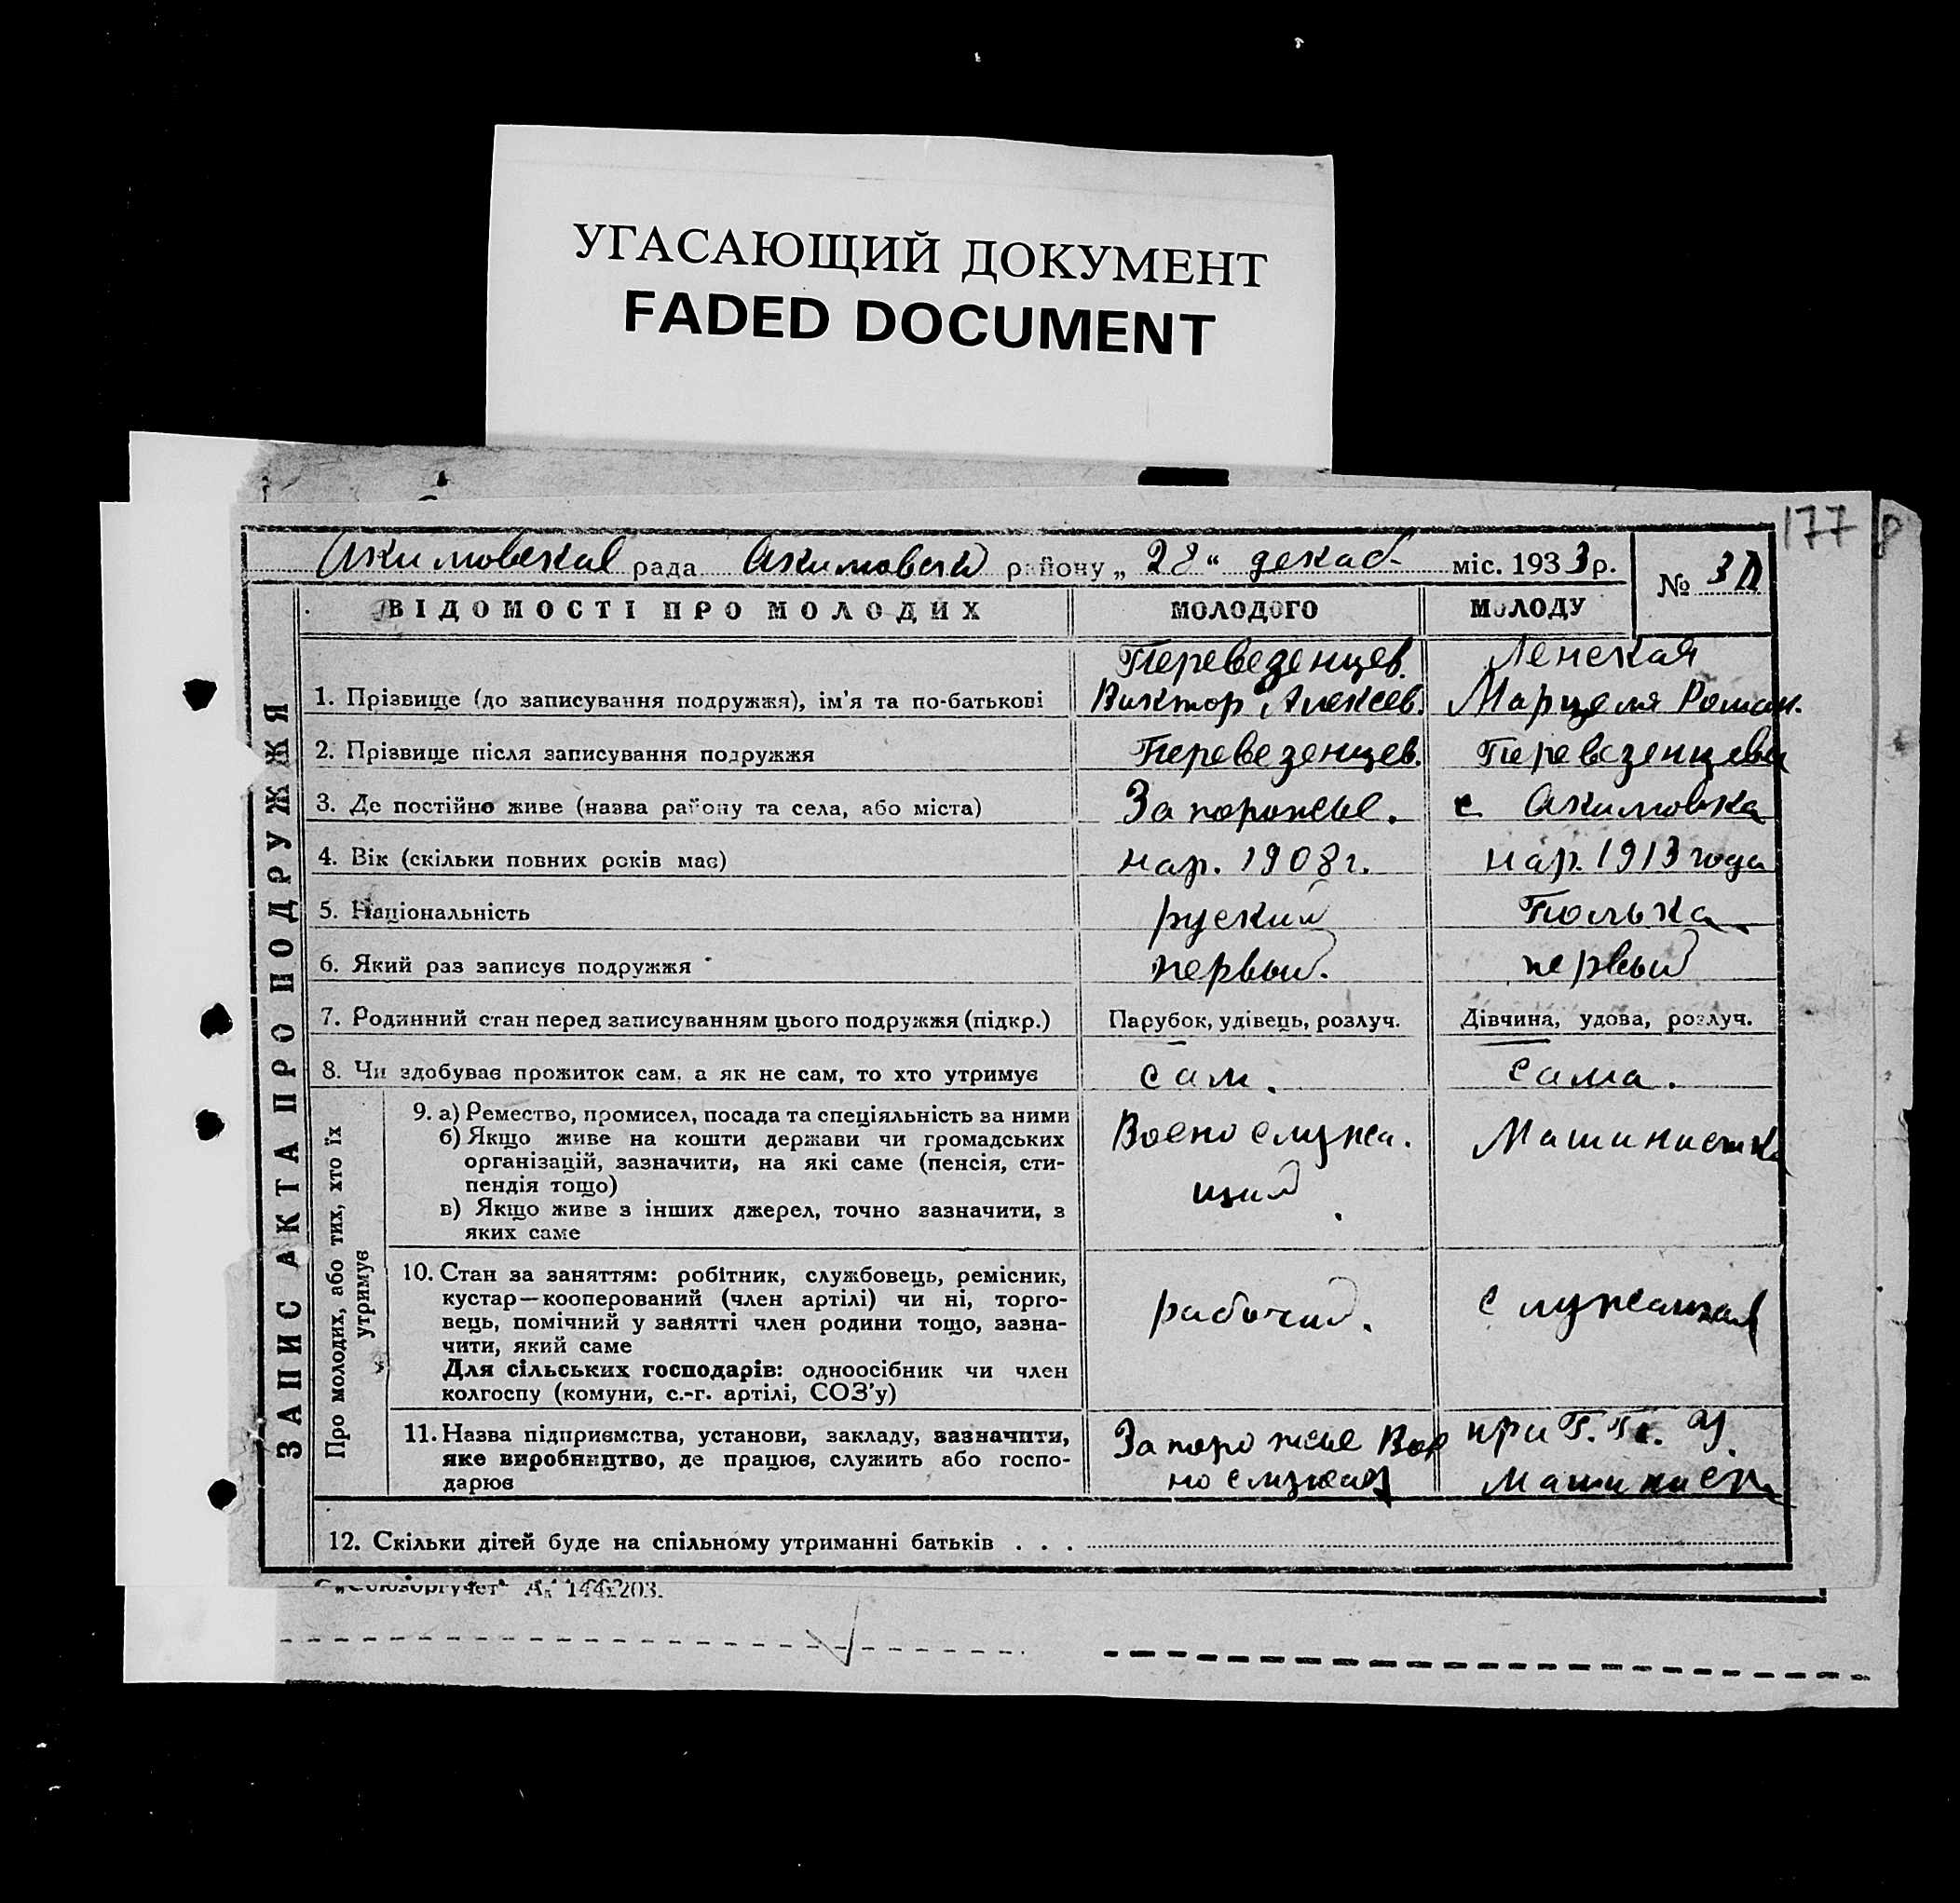 УГАСАЮЩИЙ ДОКУМЕНТ
FADED DOCUMENT
177
Акимовская рада Акимовск району „ 28 “ декаб- міс. 1933 р.
№ 3
ВІДОМОСТІ ПРО МОЛОДИХ МОЛОДОГО МОЛОДУ
ЗАПИС АКТА ПРО ПОДРУЖЖЯ
Перевезенцев. Ленская
1. Прізвище (до записування подружжя), ім'я та по-батькові Виктор Алексеев. Марцеля Роман.
2. Прізвище після записування подружжя Перевезенцев. Перевезенцева
3. Де постійно живе (назва району та села, або міста) Запорожье. с Акимовка
4. Вік (скільки повних років має) нар. 1908 г. нар. 1913 года
5. Національність руский Полька
6. Який раз записує подружжя первый. первый
7. Родинний стан перед записуванням цього подружжя (підкр.) Парубок, удівець, розлуч. Дівчина, удова, розлуч.
8. Чи здобуває прожиток сам, а як не сам, то хто утримує сам. сама.
Про молодих, або тих, хто їх утримує
9. а) Ремество, промисел, посада та спеціяльність за ними Воено служа. Машинистка
б) Якщо живе на кошти держави чи громадських
організацій, зазначити, на які саме (пенсія, сти- щий
пендія тощо)
в) Якщо живе з інших джерел, точно зазначити, з
яких саме
10. Стан за заняттям: робітник, службовець, ремісник,
кустар—кооперований (член артілі) чи ні, торго- рабочий. служащая
вець, помічний у занятті член родини тощо, зазна-
чити, який саме
Для сільських господарів: одноосібник чи член
колгоспу (комуни, с.-г. артілі, СОЗ'у)
11. Назва підприємства, установи, закладу, зазначити, Запорожье при
яке виробництво, де працює, служить або госпо-
дарює
12. Скільки дітей буде на спільному утриманні батьків . . .
„Союзоргучет“